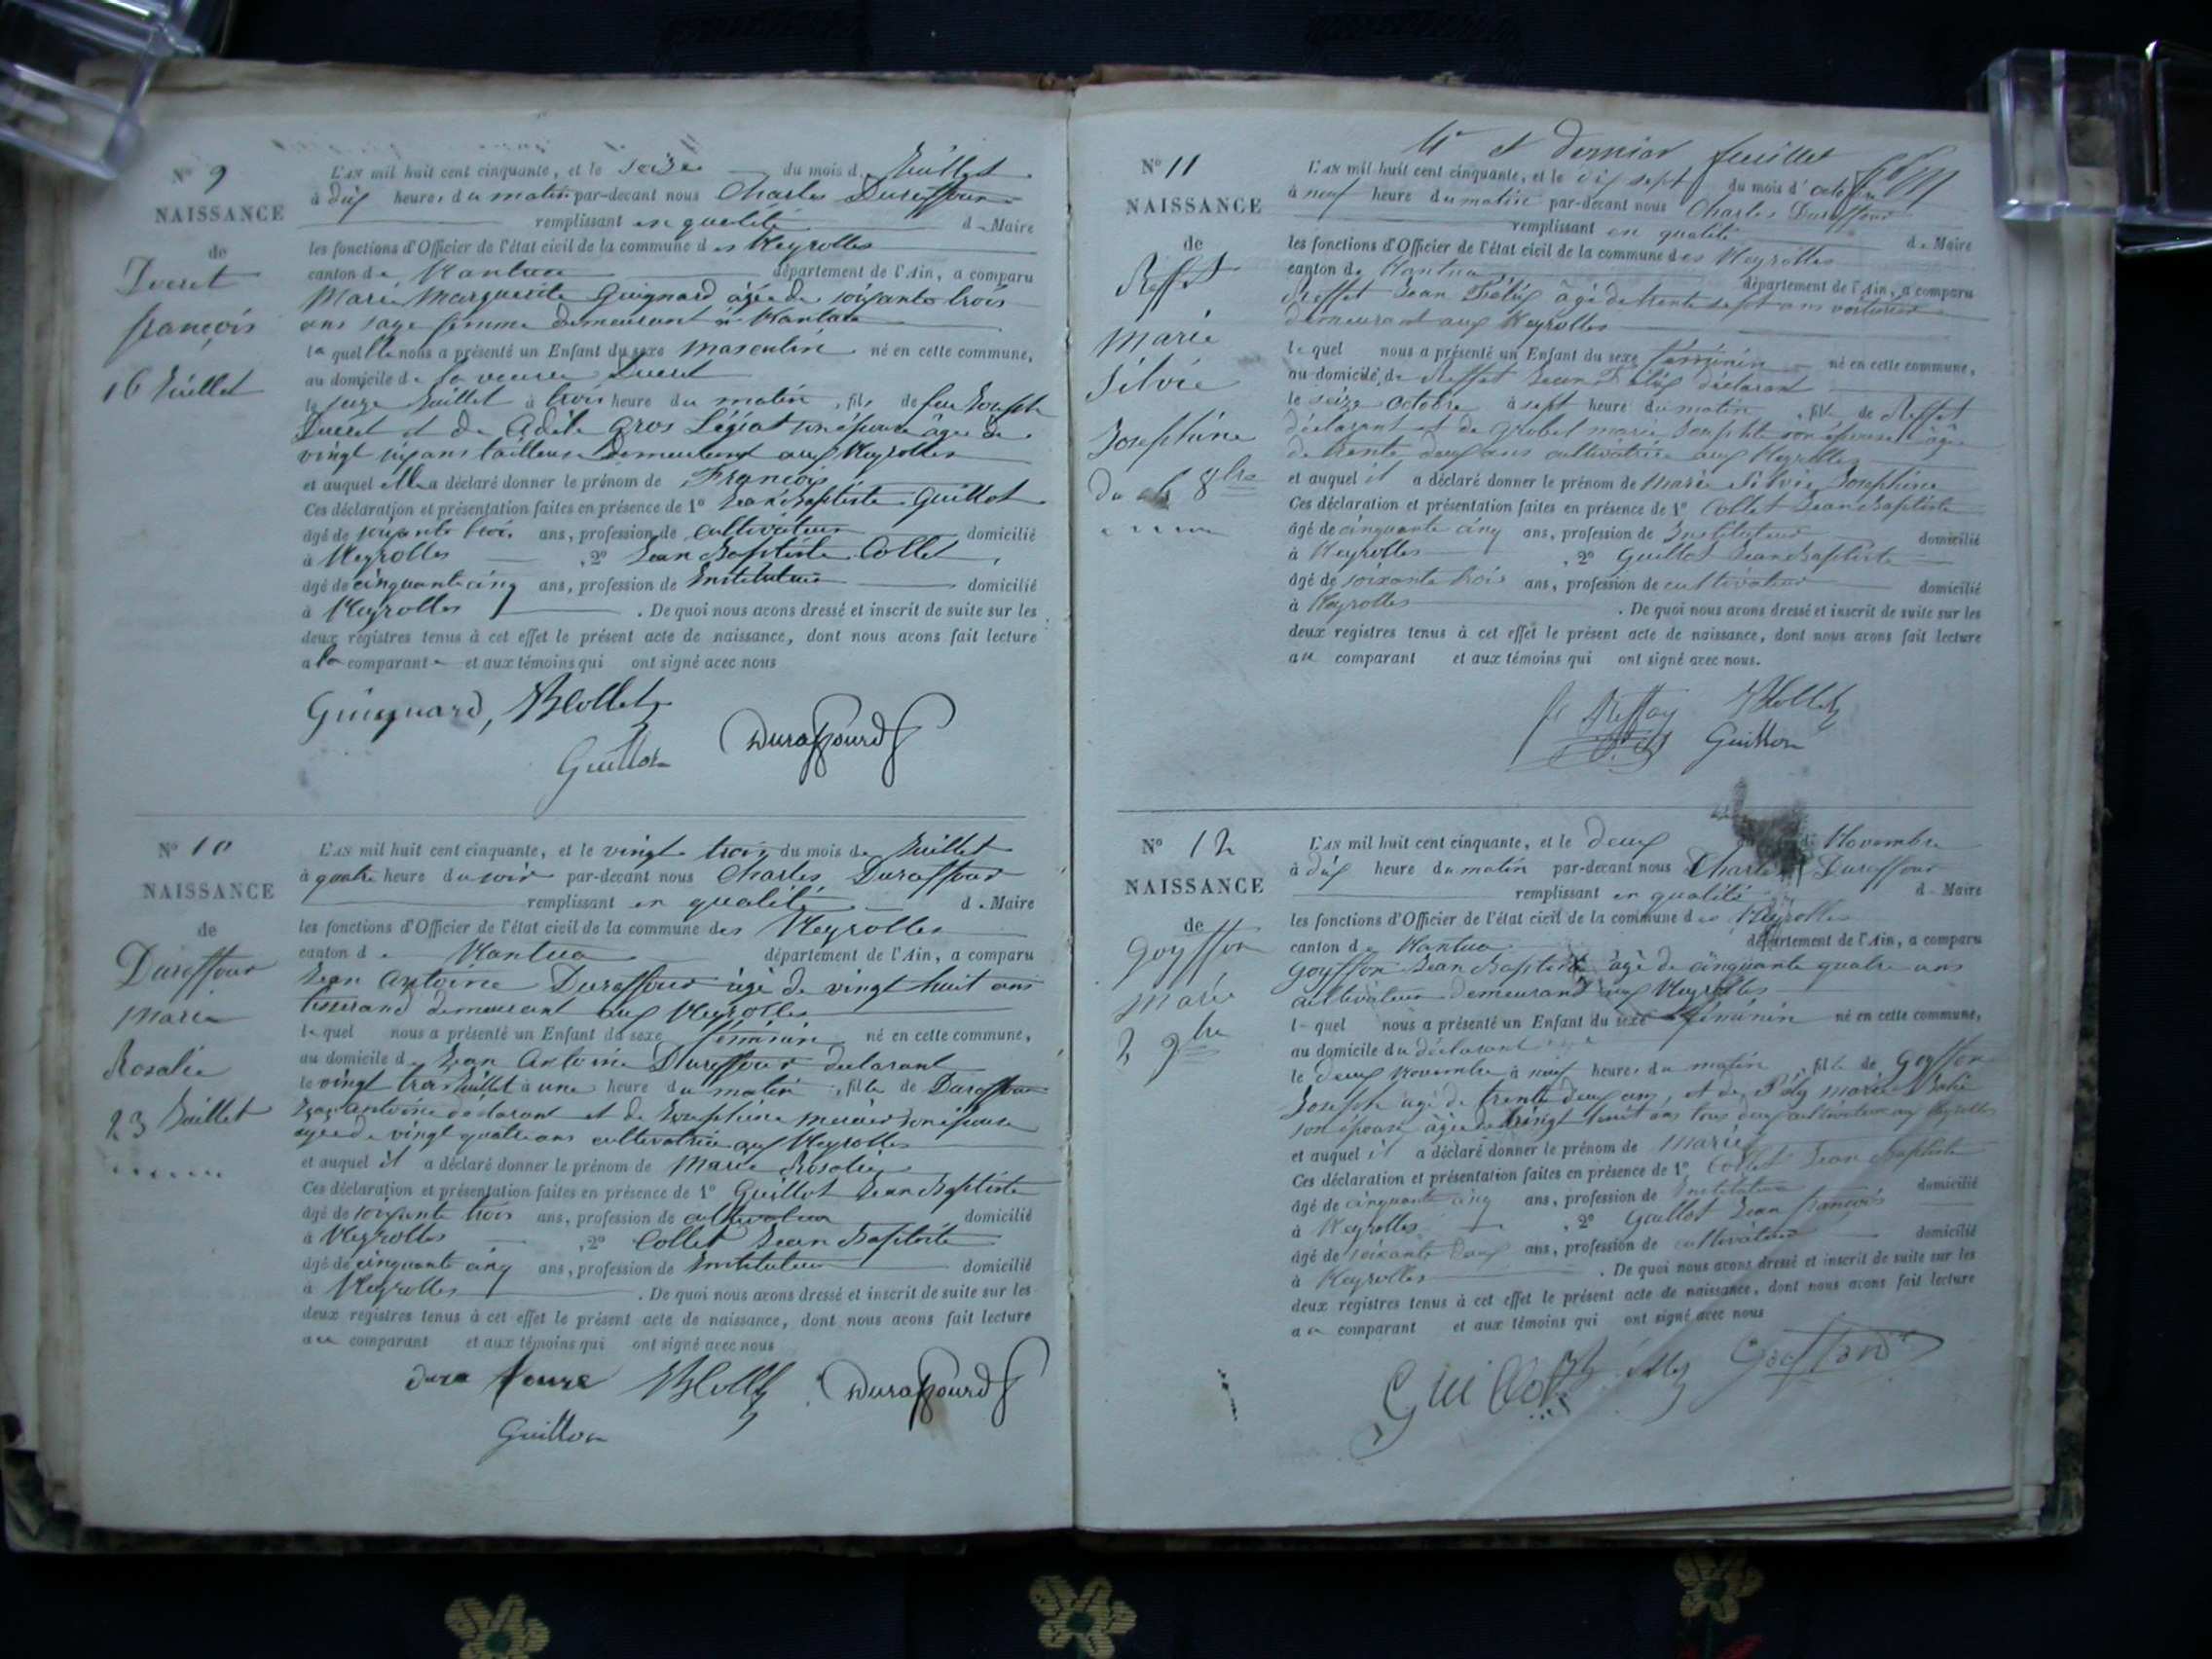 N° 9
NAISSANCE
de
Ducret
françois
16 Juillet
L'AN mil huit cent cinquante, et le seize du mois de Juillet
à dix heures du matin par-devant nous Charles Duraffour
remplissant en qualité de Maire
les fonctions d'Officier de l'état civil de la commune des Neyrolles
canton de Nantua département de l'Ain, a comparu
Marie Marguerite Guignard âgée de soixante trois
ans sage femme demeurant à Nantua
laquelle nous a présenté un Enfant du sexe masculin né en cette commune,
au domicile de la veuve Ducret
le seize Juillet à trois heure du matin, fils de feu Joseph
Ducret et de Adèle Gros Légiat son épouse agée de
vingt six ans tailleuse demeurant aux Neyrolles
et auquel elle a déclaré donner le prénom de François
Ces déclaration et présentation faites en présence de 1° Jean Baptiste Guillot
âgé de soixante trois ans, profession de cultivateur domicilié
à Neyrolles , 2° Jean Baptiste Collet ,
âgé de cinquante cinq ans, profession de Instituteur domicilié
à Neyrolles . De quoi nous avons dressé et inscrit de suite sur les
deux registres tenus à cet effet le présent acte de naissance, dont nous avons fait lecture
à la comparante et aux témoins qui ont signé avec nous
Guignard, JBCollet
Guillot Duraffourd
N° 10
NAISSANCE
de
Duraffour
Marie
Rosalie
23 Juillet
L'AN mil huit cent cinquante, et le vingt trois du mois de Juillet
à quatre heure du soir par-devant nous Charles Duraffour
remplissant en qualité de Maire
les fonctions d'Officier de l'état civil de la commune des Neyrolles
canton de Nantua département de l'Ain, a comparu
Jean Antoine Duraffour âgé de vingt huit ans
tisserand demeurant aux Neyrolles
lequel nous a présenté un Enfant du sexe féminin né en cette commune,
au domicile de Jean Antoine Duraffour déclarant
le vingt trois Juillet à une heure du matin, fille de Duraffour
Jean Antoine déclarant et de Josephine Mercier son épouse
agée de vingt quatre ans cultivatrice aux Neyrolles
et auquel il a déclaré donner le prénom de Marie Rosalie
Ces déclaration et présentation faites en présence de 1° Guillot Jean Baptiste
âgé de soixante trois ans, profession de cultivateur domicilié
à Neyrolles , 2° Collet Jean Baptiste
âgé de cinquante cinq ans, profession de Instituteur domicilié
à Neyrolles . De quoi nous avons dressé et inscrit de suite sur les
deux registres tenus à cet effet le présent acte de naissance, dont nous avons fait lecture
au comparant et aux témoins qui ont signé avec nous
JBCollet Duraffourd
Guillot
4e et dernier feuillet
N° 11
NAISSANCE
de
Reffet
Marie
Silvie
Josephine
du 16 8bre
L'AN mil huit cent cinquante, et le dix sept du mois d'octobre
à neuf heure du matin par-devant nous Charles Duraffour
remplissant en qualité de Maire
les fonctions d'Officier de l'état civil de la commune des Neyrolles
canton de Nantua département de l'Ain, a comparu
Reffet Jean Félix âgé de trente sept ans voiturier
demeurant aux Neyrolles
lequel nous a présenté un Enfant du sexe féminin né en cette commune,
au domicile de Reffet Jean Félix déclarant
le seize octobre à sept heure du matin, fille de Reffet
déclarant et de Grobel marie Josephte son épouse agée
de trente deux ans cultivatrice aux Neyrolles
et auquel il a déclaré donner le prénom de Marie Silvie Josephine
Ces déclaration et présentation faites en présence de 1° Collet Jean Baptiste
âgé de cinquante cinq ans, profession de Instituteur domicilié
à Neyrolles , 2° Guillot Jean Baptiste
âgé de soixante trois ans, profession de cultivateur domicilié
à Neyrolles . De quoi nous avons dressé et inscrit de suite sur les
deux registres tenus à cet effet le présent acte de naissance, dont nous avons fait lecture
au comparant et aux témoins qui ont signé avec nous.
JBCollet
Guillot
N° 12
NAISSANCE
de
Goyffon
Marie
2 9bre
L'AN mil huit cent cinquante, et le deux Novembre
à dix heure du matin par-devant nous Charles Duraffour
remplissant en qualité de Maire
les fonctions d'Officier de l'état civil de la commune des Neyrolles
canton de Nantua département de l'Ain, a comparu
Goyffon Jean Baptiste âgé de cinquante quatre ans
cultivateur demeurant aux Neyrolles
lequel nous a présenté un Enfant du sexe féminin né en cette commune,
au domicile du déclarant
le deux Novembre à neuf heures du matin, fille de Goyffon
Joseph âgé de trente deux ans, et de Poly marie
son épouse âgée de vingt huit ans tous deux cultivateurs aux Neyrolles
et auquel il a déclaré donner le prénom de Marie
Ces déclaration et présentation faites en présence de 1° Collet Jean Baptiste
âgé de cinquante cinq ans, profession de Instituteur domicilié
à Neyrolles , 2° Guillot Jean François
âgé de soixante deux ans, profession de cultivateur domicilié
à Neyrolles . De quoi nous avons dressé et inscrit de suite sur les
deux registres tenus à cet effet le présent acte de naissance, dont nous avons fait lecture
au comparant et aux témoins qui ont signé avec nous
Guillot Goiffond